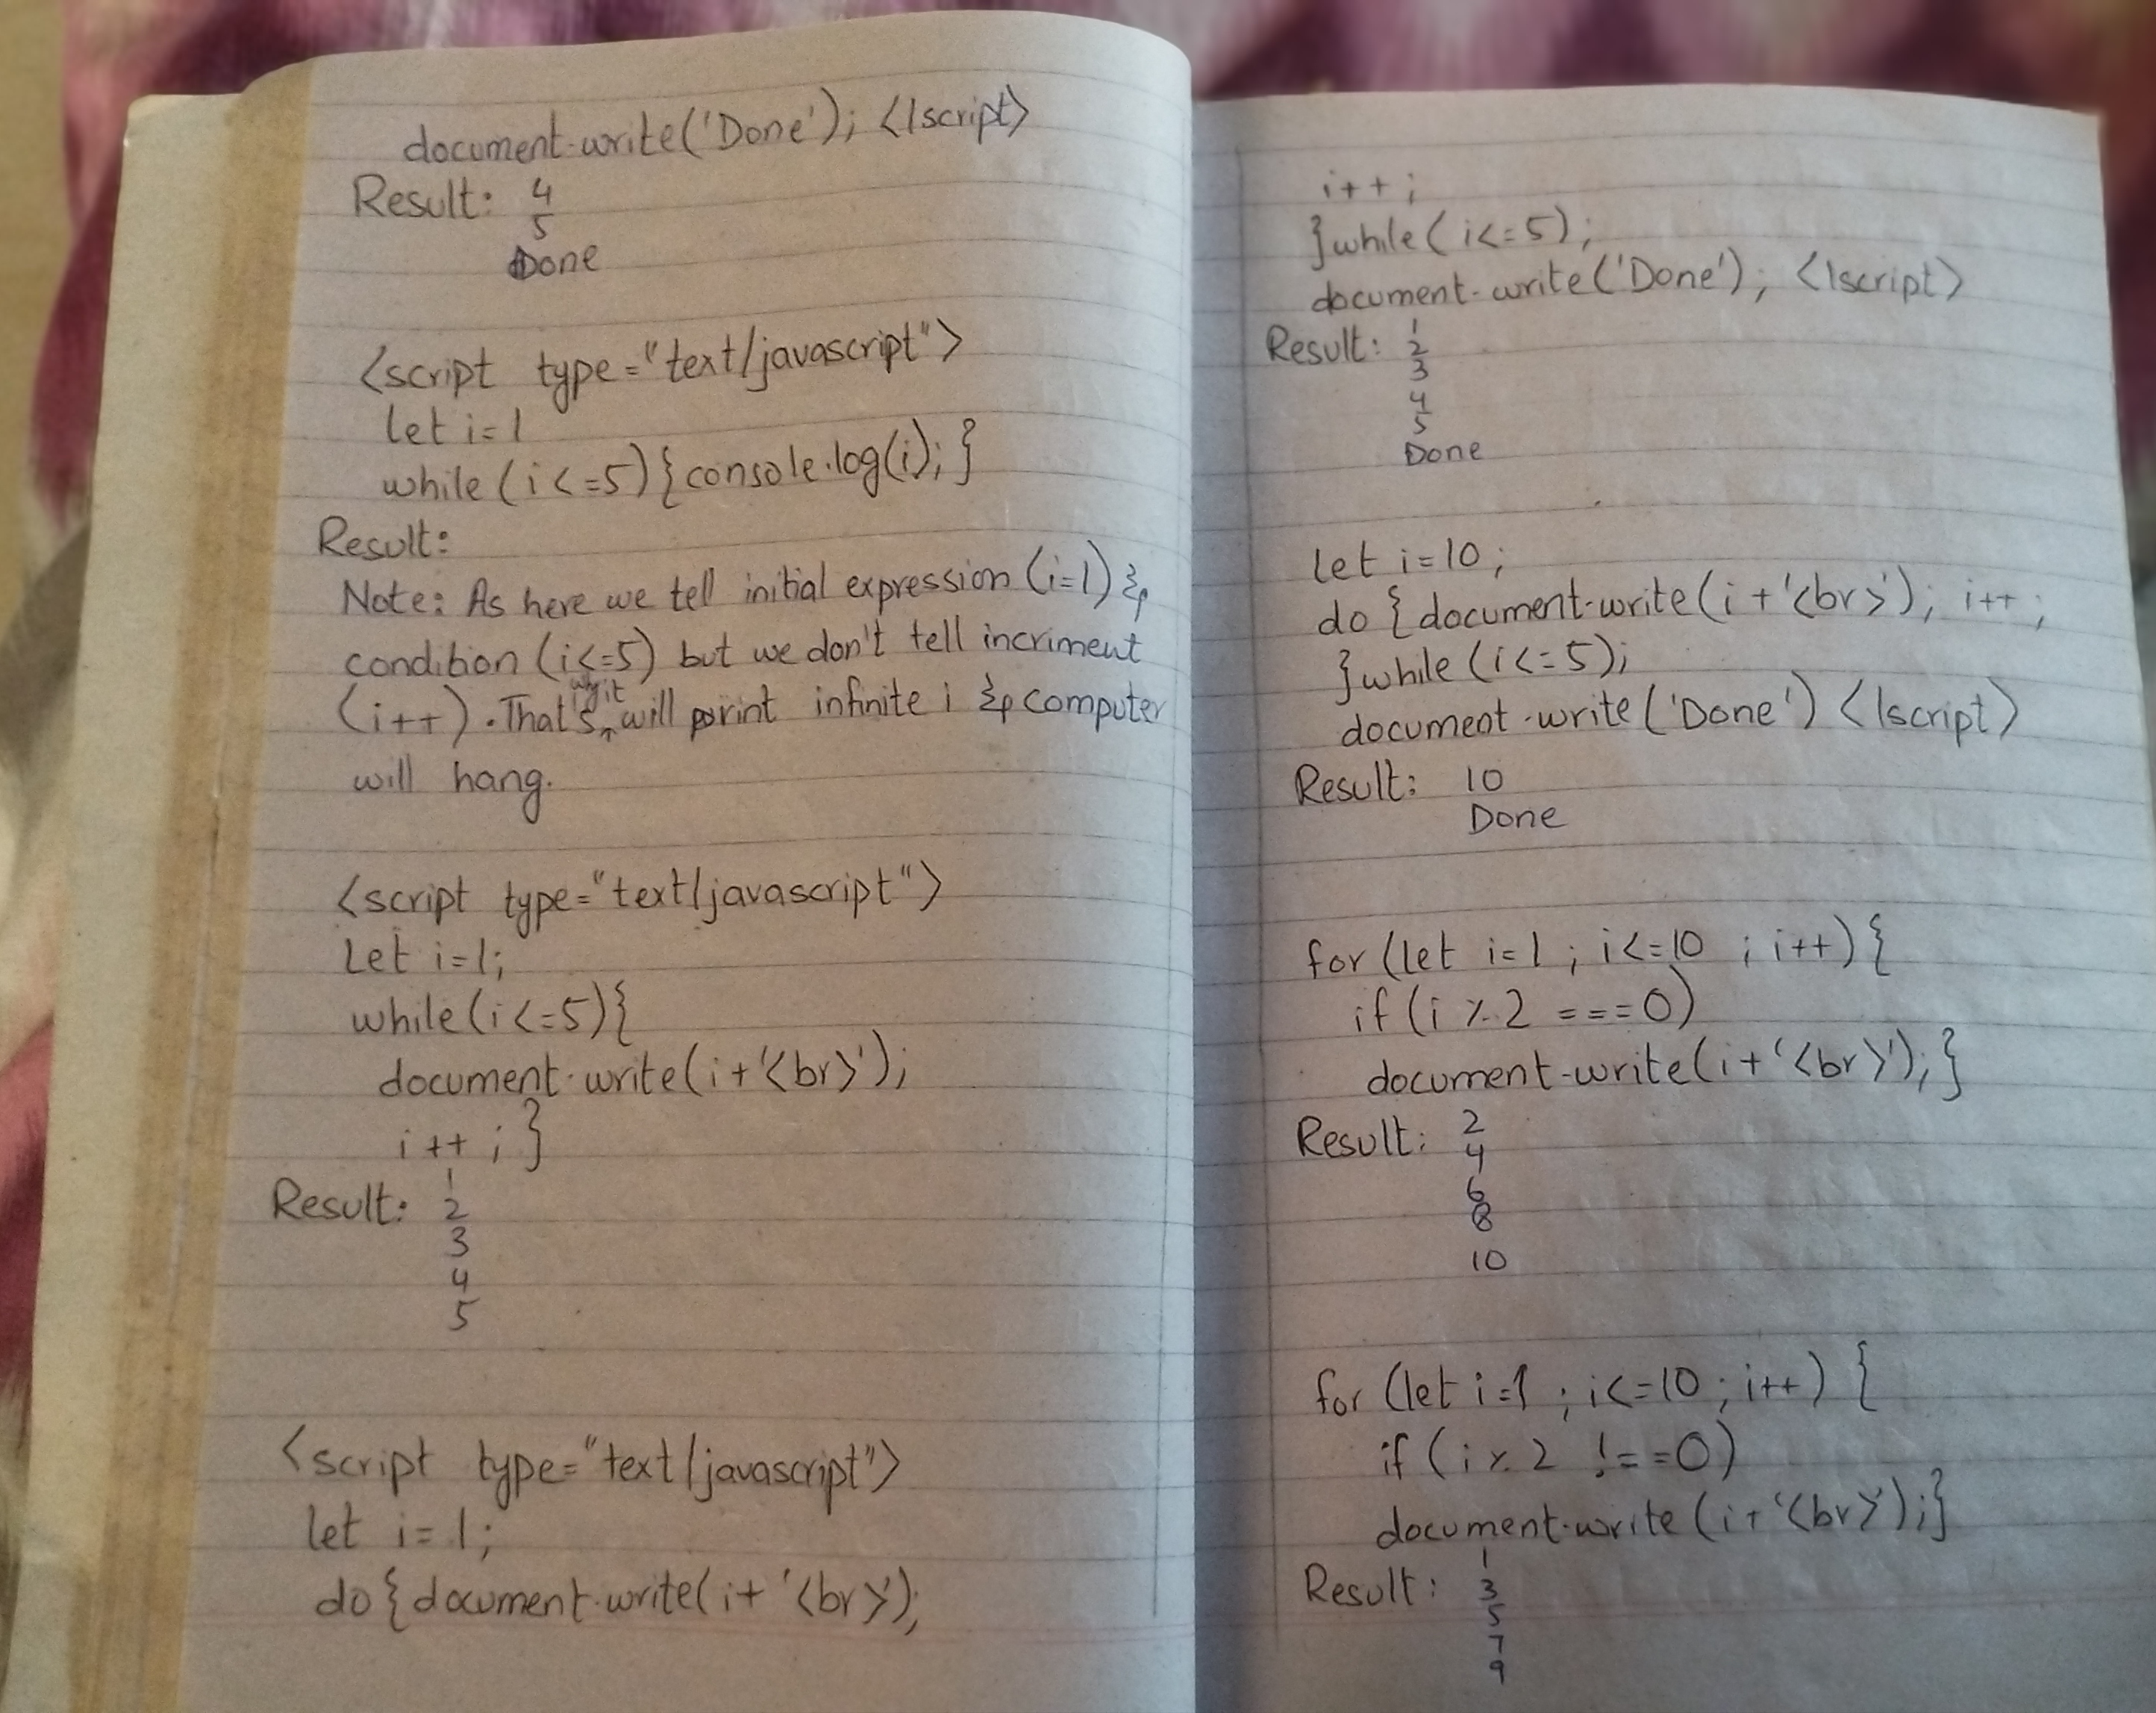 document.write('Done'); </script>
Result: 4
5
Done
<script type="text/javascript">
let i=1
while (i<=5){console.log(i);}
Result:
Note: As here we tell initial expression (i=1) &
condition (i<=5) but we don't tell incriment
(i++). That's why it will print infinite i & computer
will hang.
<script type="text/javascript">
Let i=1;
while(i<=5){
document.write(i+'<br>');
i++;}
Result: 1
2
3
4
5
<script type="text/javascript">
let i=1;
do{document.write(i+'<br>');
i++;
}while(i<=5);
document.write('Done'); </script>
Result: 1
2
3
4
5
Done
let i=10;
do {document.write(i+'<br>'); i++;
}while(i<=5);
document.write('Done') </script>
Result: 10
Done
for (let i=1; i<=10; i++){
if (i % 2 ===0)
document.write(i+'<br>');}
Result: 2
4
6
8
10
for (let i=1; i<=10; i++) {
if (i % 2 !==0)
document.write(i+'<br>');}
Result: 1
3
5
7
9